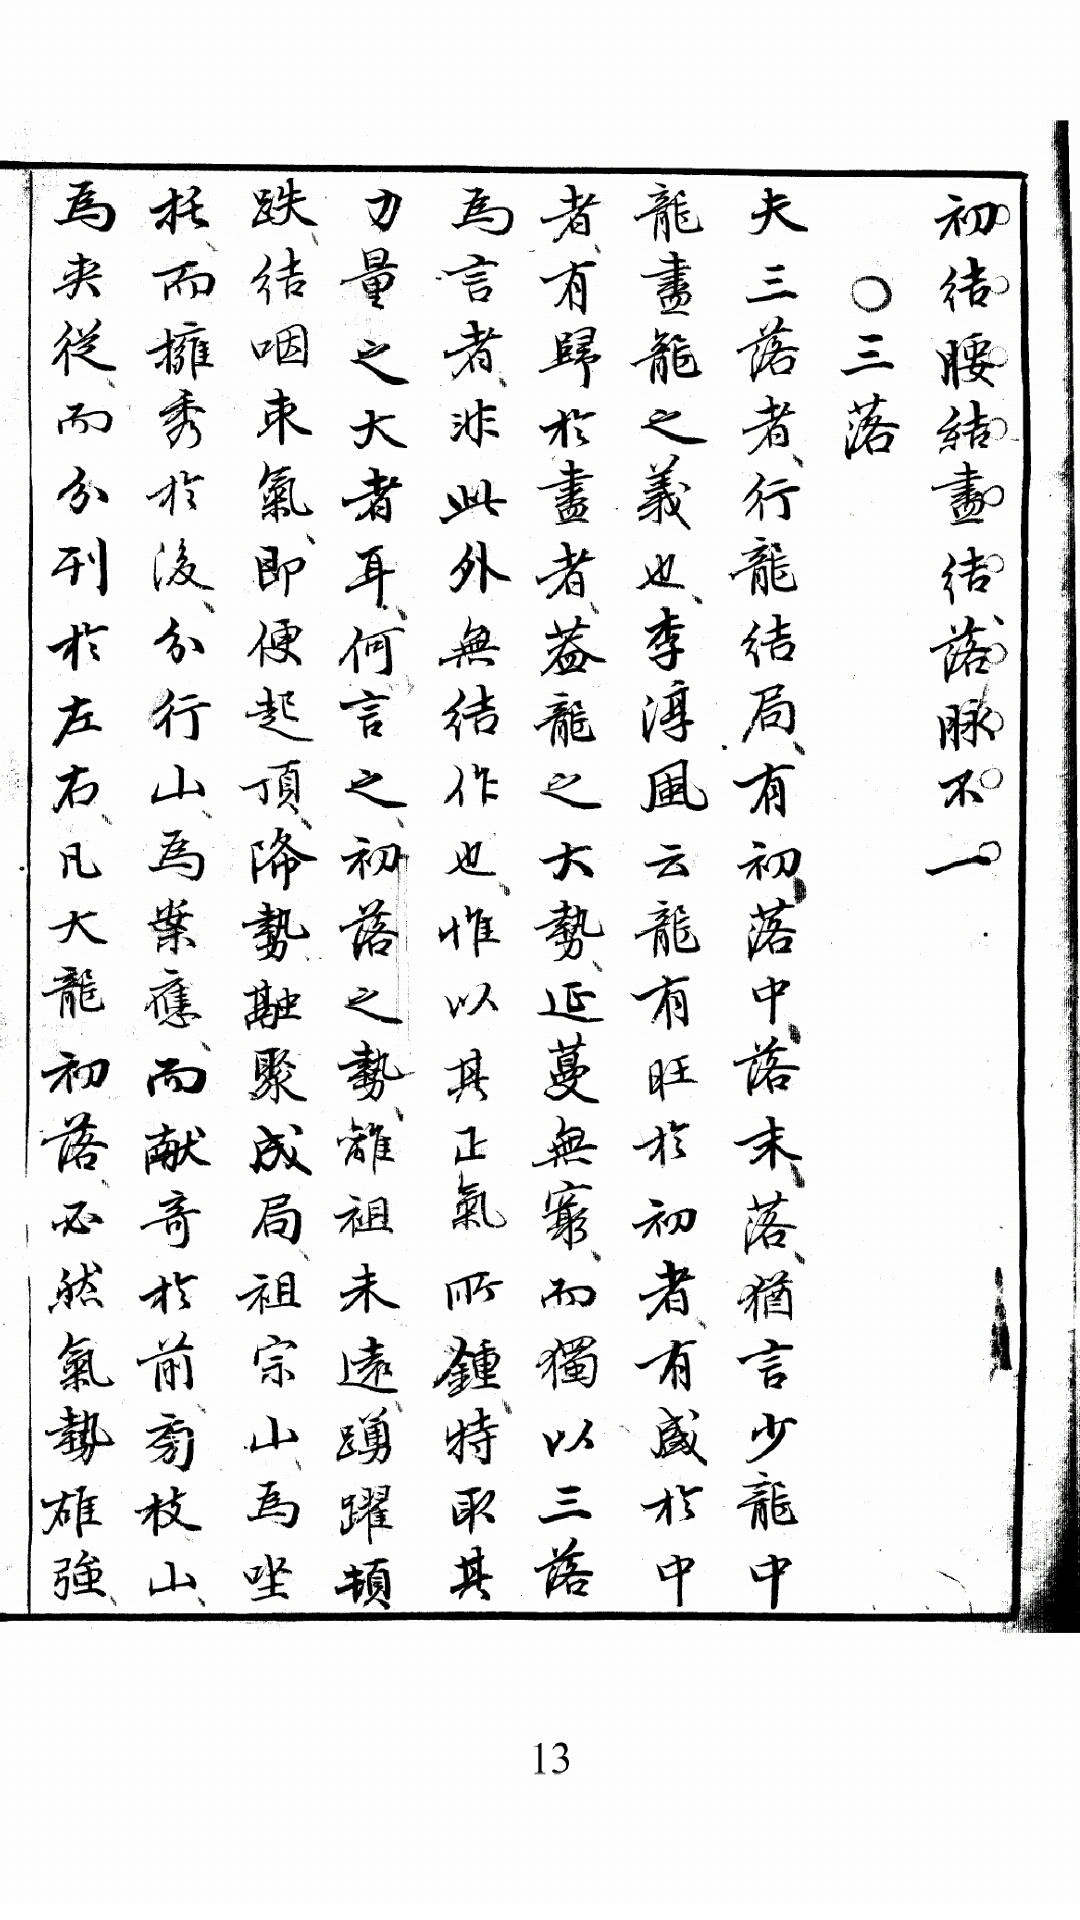 初結腰結盡結落脉不一
〇三落
夫三落者行龍結局有初落中落末落猶言少龍中
龍盡龍之義也李淳風云龍有旺於初者有盛於中
者有歸於盡者葢龍之大勢延蔓無窮而獨以三落
為言者非此外無結作也惟以其正氣所鍾特取其
力量之大者耳何言之初落之勢離祖未遠踴躍頓
跌結咽束氣即便起頂降勢融聚成局祖宗山為坐
托而擁秀於後分行山為案應而献奇於前旁枝山
為夾從而分列於左右凡大龍初落必然氣勢雄強
13